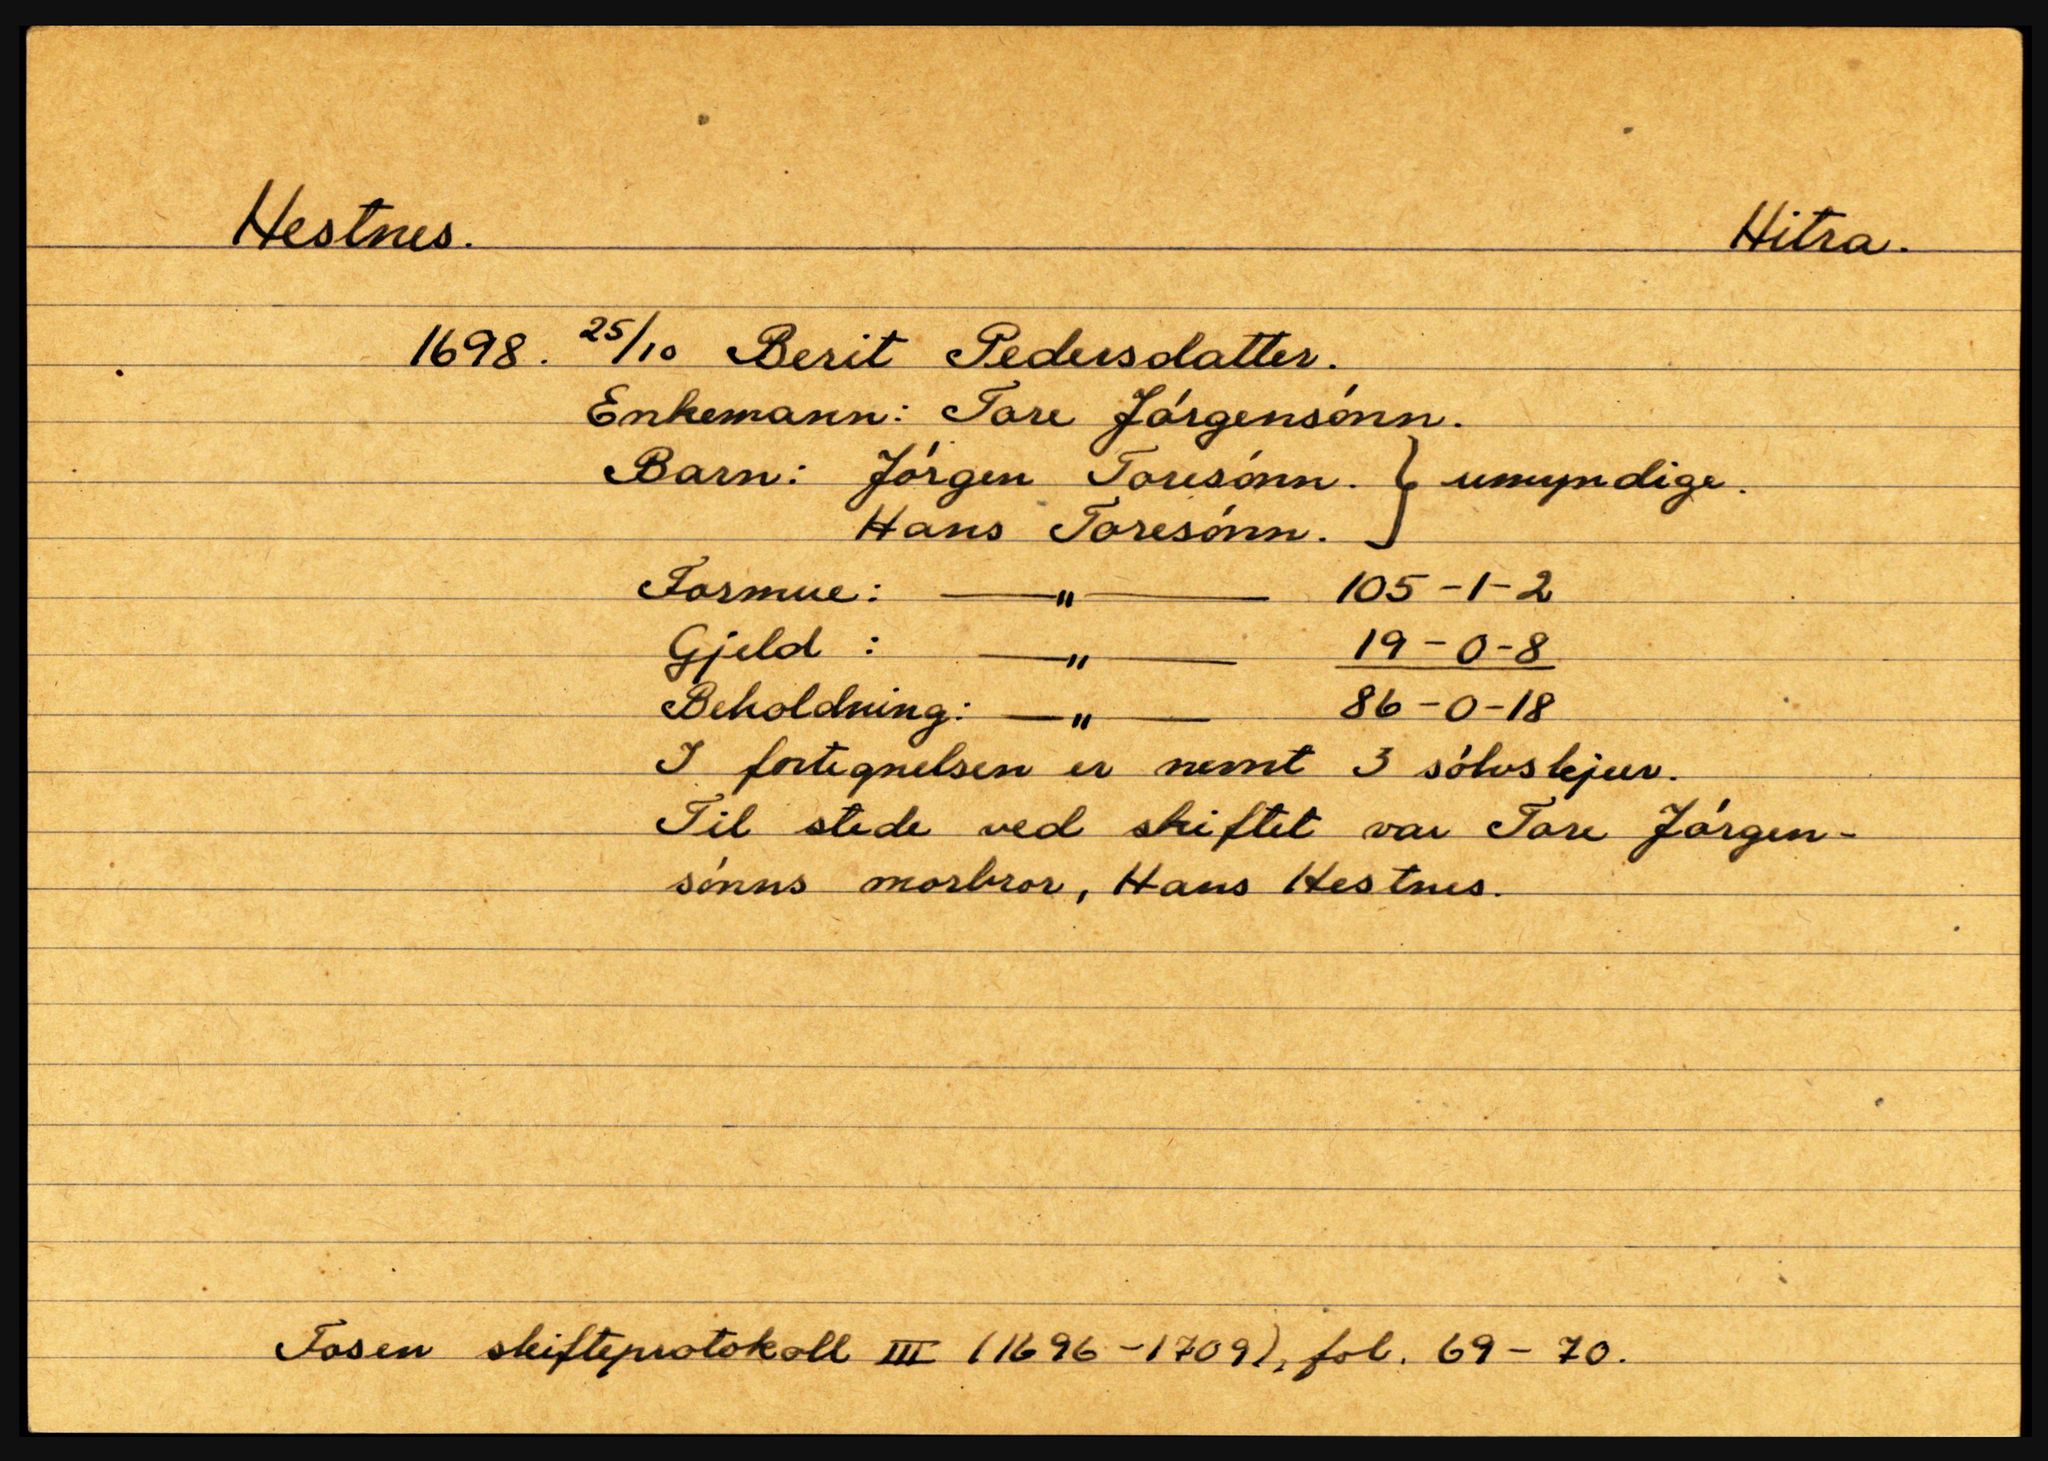 Hestnes. Hitra.
1698. 25/10 Berit Pedersdatter.
Enkemann: Tore Jórgensónn.
Barn: Jórgen Toresónn. } umyndige.
Hans Toresónn.
Formue: —"— 105-1-2
Gjeld : —"— 19-0-8
Beholdning: —"— 86-0-18
I fortegnelsen er nemt 3 sólvskjeer.
Til stede ved skiftet var Tore Jórgen-
sónns morbror, Hans Hestnes.
Fosen skifteprotokoll III (1696-1709), fol. 69-70.